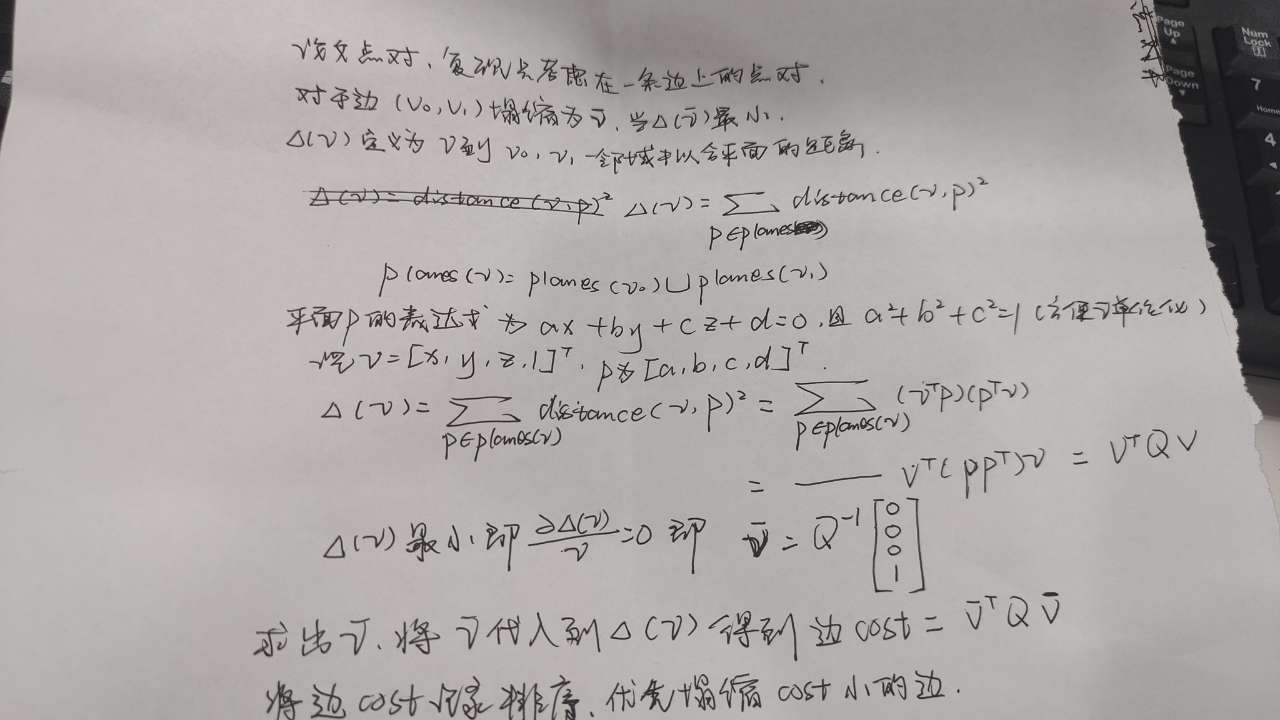 论文点对,复现只考虑在一条边上的点对.
对于边 (v₀,v₁) 塌缩为 v̄, 当Δ(v̄)最小.
Δ(v) 定义为 v到 v₀, v₁ 一邻域中以会平面的距离.
Δ(v) = distance(v,p)² Δ(v) = ∑ distance(v,p)²
p∈planes
planes(v) = planes(v₀) ∪ planes(v₁)
平面p的表达式为 ax+by+cz+d=0, 且 a²+b²+c²=1 (方便单位化)
设 v=[x, y, z, 1]ᵀ, p为 [a, b, c, d]ᵀ.
Δ(v) = ∑ distance(v,p)² = ∑ (vᵀp)(pᵀv)
p∈planes(v) p∈planes(v)
= — vᵀ(ppᵀ)v = vᵀQv
Δ(v) 最小即 ∂Δ(v)/v =0 即 v̄ = Q⁻¹ [0 0 0 1]
求出 v̄, 将 v̄ 代入到 Δ(v) 得到 边 cost = v̄ᵀQv̄
将边 cost 排序, 优先塌缩 cost 小的边.
Page Up
Page Down
Num Lock
7
Home
4